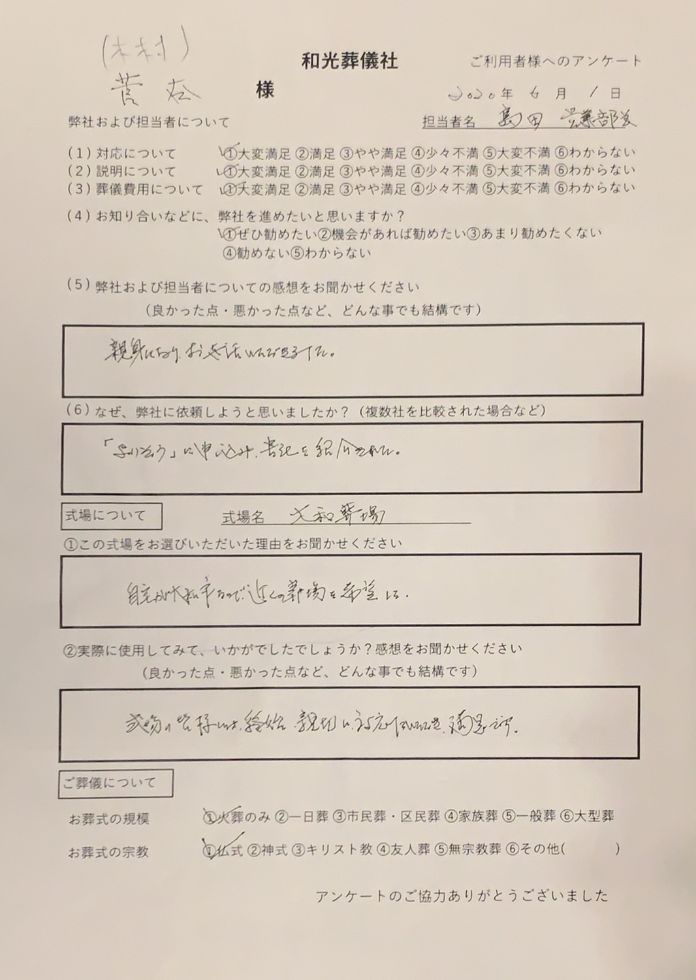 (木村)
和光葬儀社
ご利用者様へのアンケート
菅 様
2020年 6月 1日
弊社および担当者について
担当者名 島田 営業部長
(1) 対応について ①大変満足 ②満足 ③やや満足 ④少々不満 ⑤大変不満 ⑥わからない
(2) 説明について ①大変満足 ②満足 ③やや満足 ④少々不満 ⑤大変不満 ⑥わからない
(3) 葬儀費用について ①大変満足 ②満足 ③やや満足 ④少々不満 ⑤大変不満 ⑥わからない
(4) お知り合いなどに、弊社を進めたいと思いますか？
①ぜひ勧めたい②機会があれば勧めたい③あまり勧めたくない
④勧めない⑤わからない
(5) 弊社および担当者についての感想をお聞かせください
（良かった点・悪かった点など、どんな事でも結構です）
親身になり、お世話いただきました。
(6) なぜ、弊社に依頼しようと思いましたか？（複数社を比較された場合など）
「よりそう」に申込み、貴社を紹介された。
式場について 式場名 大和葬場
①この式場をお選びいただいた理由をお聞かせください
自宅が大和市なので近くの葬場を希望した.
②実際に使用してみて、いかがでしたでしょうか？感想をお聞かせください
（良かった点・悪かった点など、どんな事でも結構です）
式場の皆様には、終始、親切に対応いただき、満足です.
ご葬儀について
お葬式の規模 ①火葬のみ ②一日葬 ③市民葬・区民葬 ④家族葬 ⑤一般葬 ⑥大型葬
お葬式の宗教 ①仏式 ②神式 ③キリスト教 ④友人葬 ⑤無宗教葬 ⑥その他( )
アンケートのご協力ありがとうございました